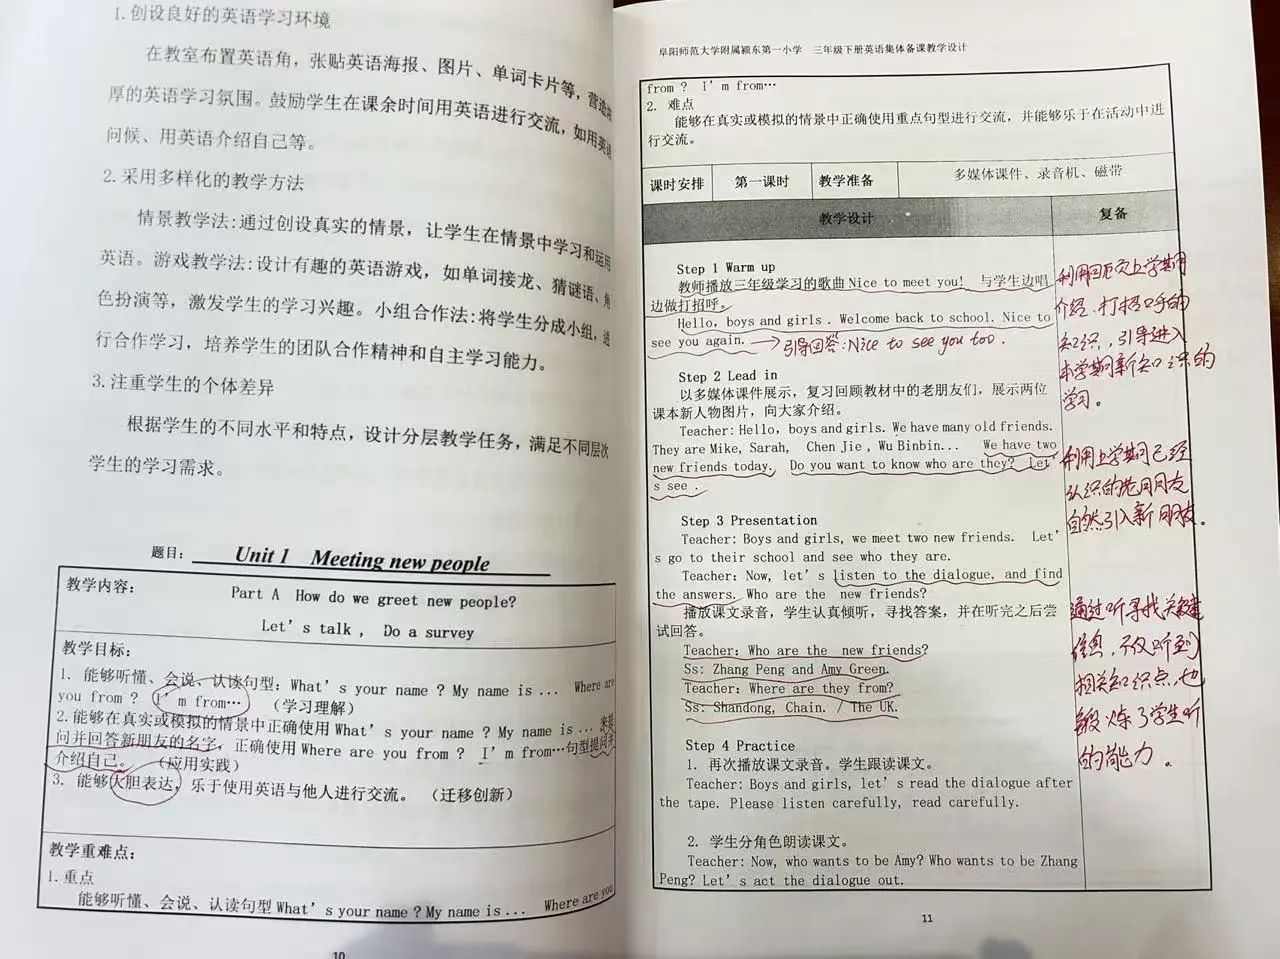 1.创设良好的英语学习环境
在教室布置英语角，张贴英语海报、图片、单词卡片等，营造浓
厚的英语学习氛围。鼓励学生在课余时间用英语进行交流，如用英语
问候、用英语介绍自己等。
2.采用多样化的教学方法
情景教学法:通过创设真实的情景，让学生在情景中学习和运用
英语。游戏教学法:设计有趣的英语游戏，如单词接龙、猜谜语、角
色扮演等，激发学生的学习兴趣。小组合作法:将学生分成小组，进
行合作学习，培养学生的团队合作精神和自主学习能力。
3.注重学生的个体差异
根据学生的不同水平和特点，设计分层教学任务，满足不同层次
学生的学习需求。
题目: Unit 1 Meeting new people
教学内容:
Part A How do we greet new people?
Let's talk , Do a survey
教学目标:
1. 能够听懂、会说、认读句型: What's your name ? My name is ... Where are
you from ? I'm from… （学习理解）
2.能够在真实或模拟的情景中正确使用 What's your name ? My name is ... 来提
问并回答新朋友的名字，正确使用 Where are you from ? I'm from…句型提问并
介绍自己。 （应用实践）
3. 能够大胆表达，乐于使用英语与他人进行交流。 （迁移创新）
教学重难点:
1.重点
能够听懂、会说、认读句型 What's your name ? My name is ... Where are you
10
阜阳师范大学附属颍东第一小学 三年级下册英语集体备课教学设计
from ? I'm from…
2. 难点
能够在真实或模拟的情景中正确使用重点句型进行交流，并能够乐于在活动中进
行交流。
课时安排 第一课时 教学准备 多媒体课件、录音机、磁带
教学设计 复备
Step 1 Warm up
教师播放三年级学习的歌曲 Nice to meet you! 与学生边唱
边做打招呼。
Hello, boys and girls . Welcome back to school. Nice to
see you again. → 引导回答: Nice to see you too.
Step 2 Lead in
以多媒体课件展示，复习回顾教材中的老朋友们，展示两位
课本新人物图片，向大家介绍。
Teacher: Hello, boys and girls. We have many old friends.
They are Mike, Sarah, Chen Jie , Wu Binbin... We have two
new friends today. Do you want to know who are they? Let'
s see .
Step 3 Presentation
Teacher: Boys and girls, we meet two new friends. Let'
s go to their school and see who they are.
Teacher: Now, let's listen to the dialogue, and find
the answers. Who are the new friends?
播放课文录音，学生认真倾听，寻找答案，并在听完之后尝
试回答。
Teacher: Who are the new friends?
Ss: Zhang Peng and Amy Green.
Teacher: Where are they from?
Ss: Shandong, Chain. / The UK.
Step 4 Practice
1. 再次播放课文录音。学生跟读课文。
Teacher: Boys and girls, let's read the dialogue after
the tape. Please listen carefully, read carefully.
2. 学生分角色朗读课文。
Teacher: Now, who wants to be Amy? Who wants to be Zhang
Peng? Let's act the dialogue out.
利用回顾上学期
介绍、打招呼的
知识，引导进入
本学期新知识的
学习。
利用上学期已经
认识的老朋友
自然引入新朋友。
通过听寻找关键
信息，不仅听到
相关知识点，也
锻炼了学生听
的能力。
11